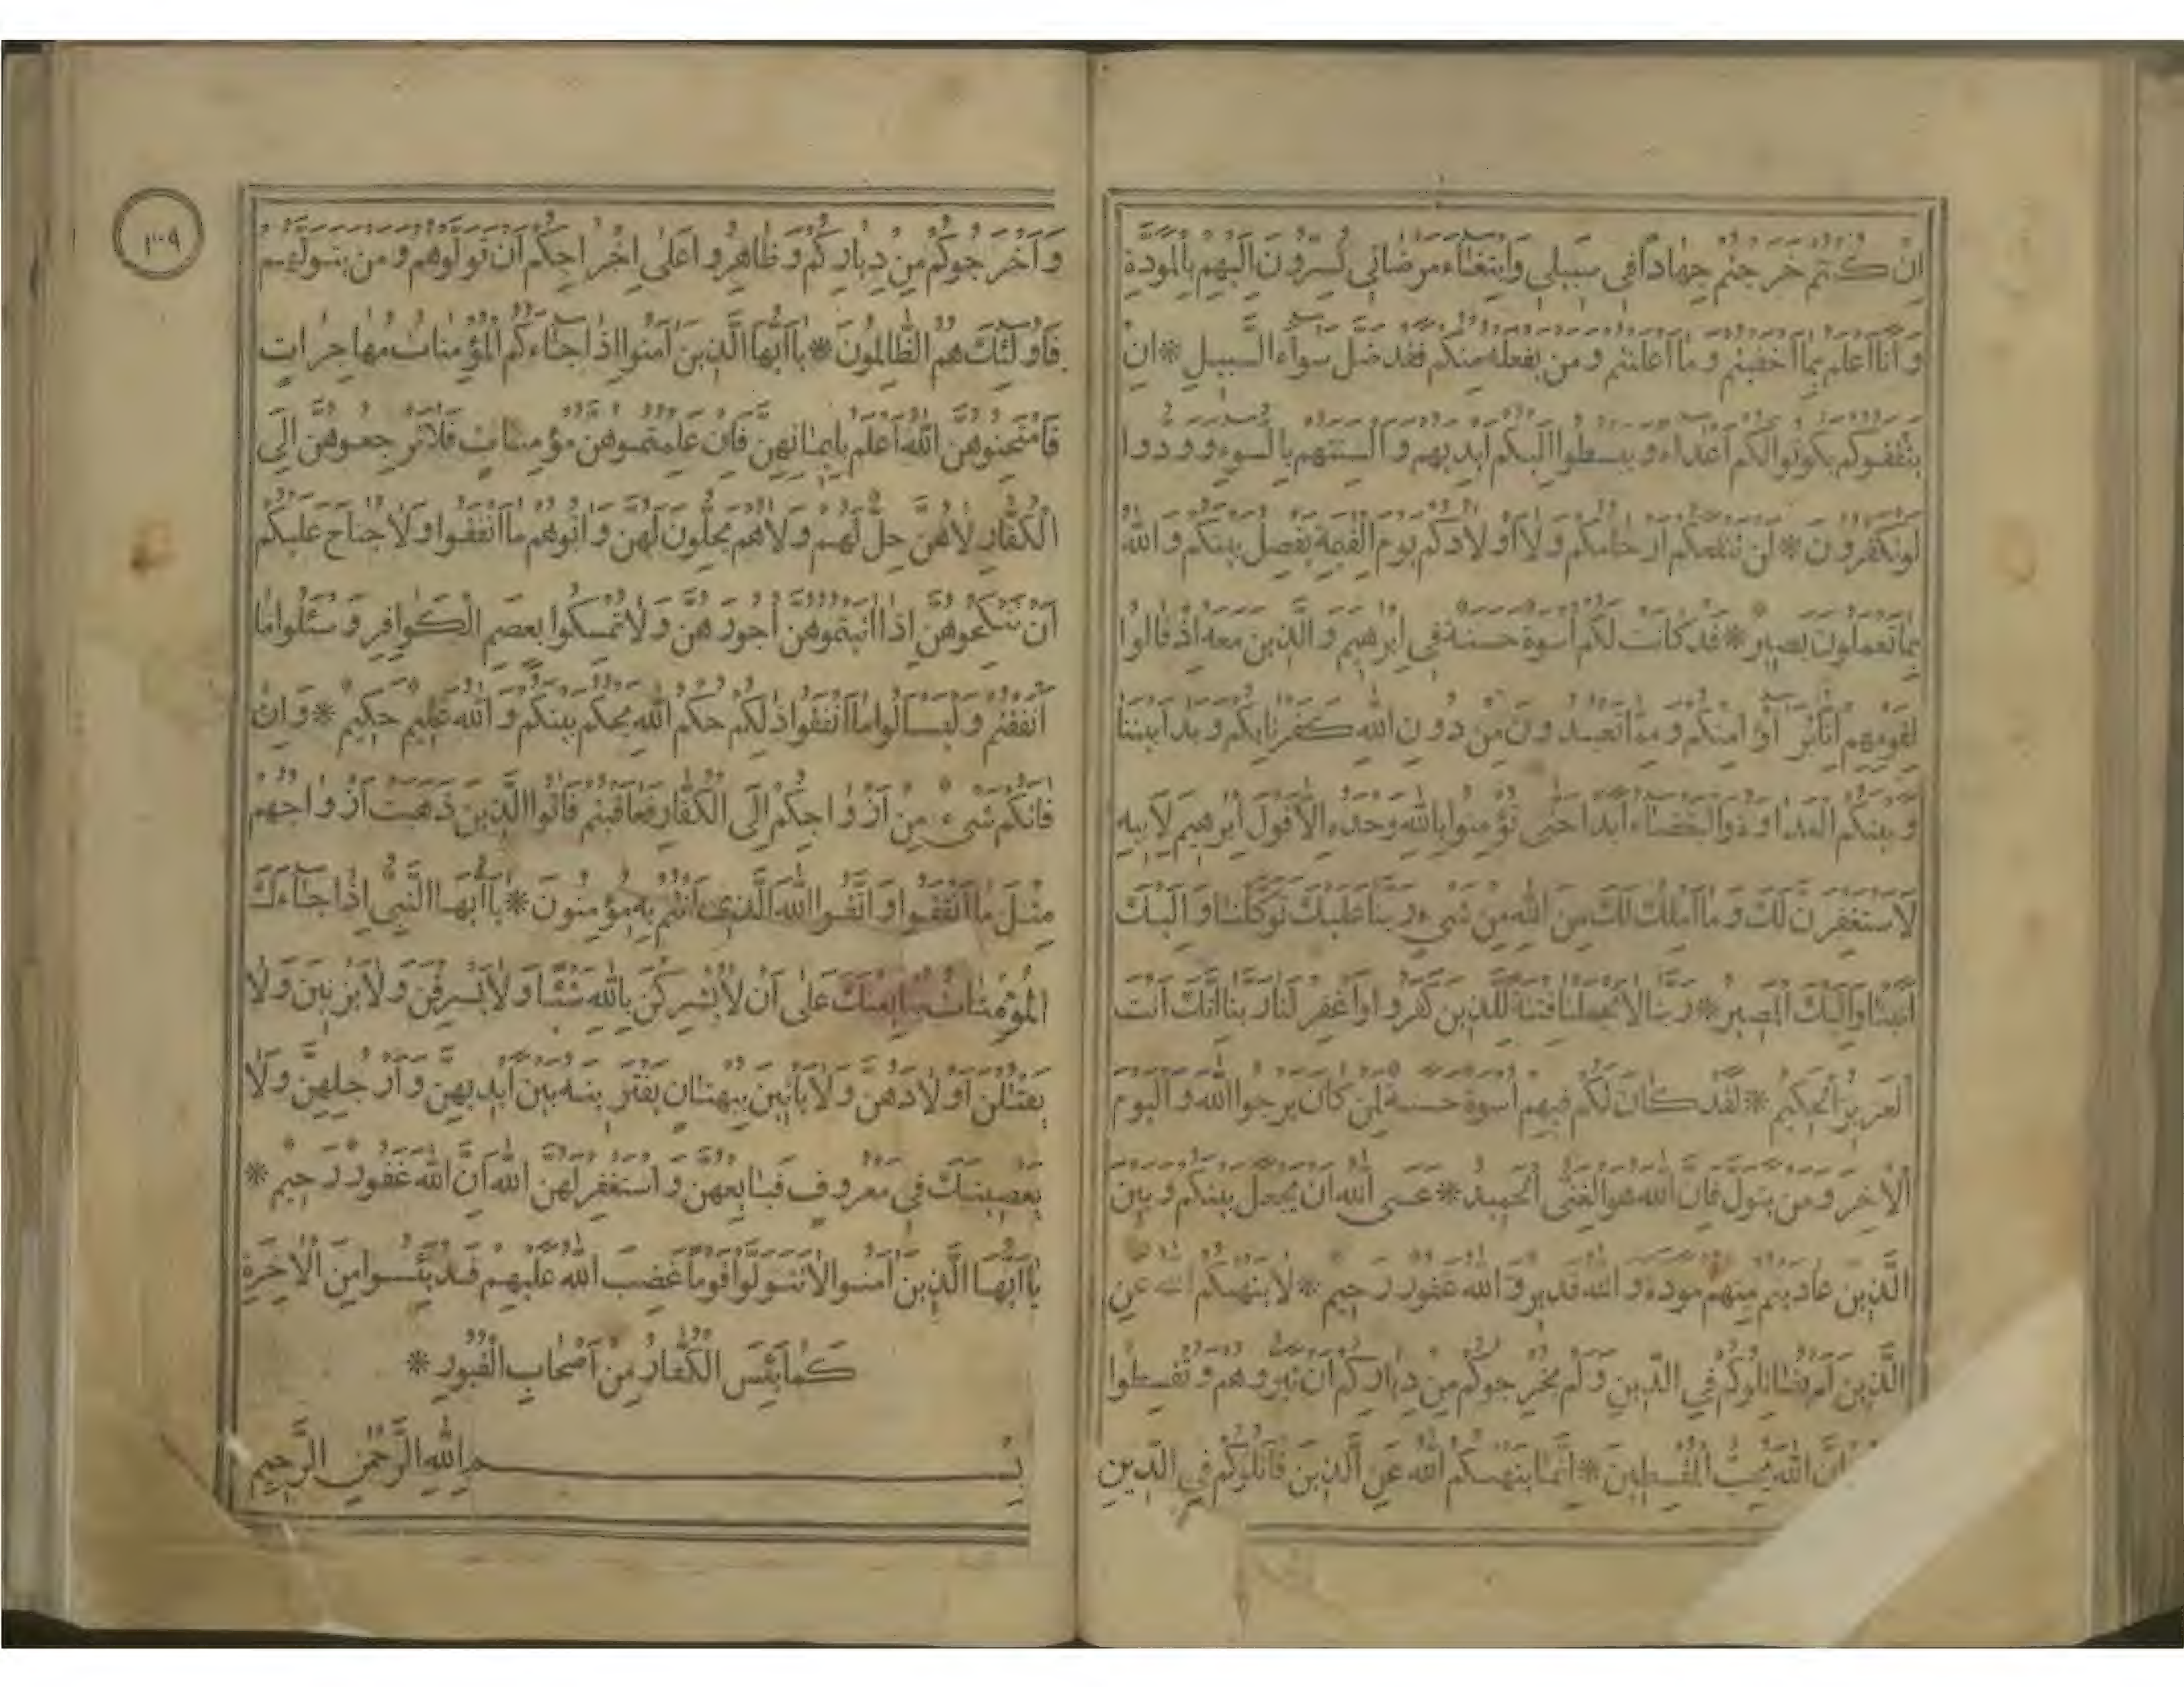 اِنْ كُنْتُمْ خَرَجْتُمْ جِهَادًا فِي سَبِيلِي وَابْتِغَاءَ مَرْضَاتِي تُسِرُّونَ اِلَيْهِمْ بِالْمَوَدَّةِ
وَاَنَا اَعْلَمُ بِمَا اَخْفَيْتُمْ وَمَا اَعْلَنْتُمْ وَمَنْ يَفْعَلْهُ مِنْكُمْ فَقَدْ ضَلَّ سَوَاءَ السَّبِيلِ * اِنْ
يَثْقَفُوكُمْ يَكُونُوا لَكُمْ اَعْدَاءً وَيَبْسُطُوا اِلَيْكُمْ اَيْدِيَهُمْ وَاَلْسِنَتَهُمْ بِالسُّوءِ وَوَدُّوا
لَوْ تَكْفُرُونَ * لَنْ تَنْفَعَكُمْ اَرْحَامُكُمْ وَلَا اَوْلَادُكُمْ يَوْمَ الْقِيٰمَةِ يَفْصِلُ بَيْنَكُمْ وَاللّٰهُ
بِمَا تَعْمَلُونَ بَصِيرٌ * قَدْ كَانَتْ لَكُمْ اُسْوَةٌ حَسَنَةٌ فِي اِبْرٰهِيمَ وَالَّذِينَ مَعَهُ اِذْ قَالُوا
لِقَوْمِهِمْ اِنَّا بُرَآؤُا مِنْكُمْ وَمِمَّا تَعْبُدُونَ مِنْ دُونِ اللّٰهِ كَفَرْنَا بِكُمْ وَبَدَا بَيْنَنَا
وَبَيْنَكُمُ الْعَدَاوَةُ وَالْبَغْضَاءُ اَبَدًا حَتّٰى تُؤْمِنُوا بِاللّٰهِ وَحْدَهُ اِلَّا قَوْلَ اِبْرٰهِيمَ لِاَبِيهِ
لَاَسْتَغْفِرَنَّ لَكَ وَمَا اَمْلِكُ لَكَ مِنَ اللّٰهِ مِنْ شَيْءٍ رَبَّنَا عَلَيْكَ تَوَكَّلْنَا وَاِلَيْكَ
اَنَبْنَا وَاِلَيْكَ الْمَصِيرُ * رَبَّنَا لَا تَجْعَلْنَا فِتْنَةً لِلَّذِينَ كَفَرُوا وَاغْفِرْ لَنَا رَبَّنَا اِنَّكَ اَنْتَ
الْعَزِيزُ الْحَكِيمُ * لَقَدْ كَانَ لَكُمْ فِيهِمْ اُسْوَةٌ حَسَنَةٌ لِمَنْ كَانَ يَرْجُوا اللّٰهَ وَالْيَوْمَ
الْاٰخِرَ وَمَنْ يَتَوَلَّ فَاِنَّ اللّٰهَ هُوَ الْغَنِيُّ الْحَمِيدُ * عَسَى اللّٰهُ اَنْ يَجْعَلَ بَيْنَكُمْ وَبَيْنَ
الَّذِينَ عَادَيْتُمْ مِنْهُمْ مَوَدَّةً وَاللّٰهُ قَدِيرٌ وَاللّٰهُ غَفُورٌ رَحِيمٌ * لَا يَنْهٰيكُمُ اللّٰهُ عَنِ
الَّذِينَ لَمْ يُقَاتِلُوكُمْ فِي الدِّينِ وَلَمْ يُخْرِجُوكُمْ مِنْ دِيَارِكُمْ اَنْ تَبَرُّوهُمْ وَتُقْسِطُوا
اِنَّ اللّٰهَ يُحِبُّ الْمُقْسِطِينَ * اِنَّمَا يَنْهٰيكُمُ اللّٰهُ عَنِ الَّذِينَ قَاتَلُوكُمْ فِي الدِّينِ
٣٠٩
وَاَخْرَجُوكُمْ مِنْ دِيَارِكُمْ وَظَاهَرُوا عَلٰى اِخْرَاجِكُمْ اَنْ تَوَلَّوْهُمْ وَمَنْ يَتَوَلَّهُمْ
فَاُولٰئِكَ هُمُ الظَّالِمُونَ * يَا اَيُّهَا الَّذِينَ اٰمَنُوا اِذَا جَاءَكُمُ الْمُؤْمِنَاتُ مُهَاجِرَاتٍ
فَامْتَحِنُوهُنَّ اَللّٰهُ اَعْلَمُ بِاِيمَانِهِنَّ فَاِنْ عَلِمْتُمُوهُنَّ مُؤْمِنَاتٍ فَلَا تَرْجِعُوهُنَّ اِلَى
الْكُفَّارِ لَا هُنَّ حِلٌّ لَهُمْ وَلَا هُمْ يَحِلُّونَ لَهُنَّ وَاٰتُوهُمْ مَا اَنْفَقُوا وَلَا جُنَاحَ عَلَيْكُمْ
اَنْ تَنْكِحُوهُنَّ اِذَا اٰتَيْتُمُوهُنَّ اُجُورَهُنَّ وَلَا تُمْسِكُوا بِعِصَمِ الْكَوَافِرِ وَسْئَلُوا مَا
اَنْفَقْتُمْ وَلْيَسْاَلُوا مَا اَنْفَقُوا ذٰلِكُمْ حُكْمُ اللّٰهِ يَحْكُمُ بَيْنَكُمْ وَاللّٰهُ عَلِيمٌ حَكِيمٌ * وَاِنْ
فَاتَكُمْ شَيْءٌ مِنْ اَزْوَاجِكُمْ اِلَى الْكُفَّارِ فَعَاقَبْتُمْ فَاٰتُوا الَّذِينَ ذَهَبَتْ اَزْوَاجُهُمْ
مِثْلَ مَا اَنْفَقُوا وَاتَّقُوا اللّٰهَ الَّذِي اَنْتُمْ بِهِ مُؤْمِنُونَ * يَا اَيُّهَا النَّبِيُّ اِذَا جَاءَكَ
الْمُؤْمِنَاتُ يُبَايِعْنَكَ عَلٰى اَنْ لَا يُشْرِكْنَ بِاللّٰهِ شَيْئًا وَلَا يَسْرِقْنَ وَلَا يَزْنِينَ وَلَا
يَقْتُلْنَ اَوْلَادَهُنَّ وَلَا يَاْتِينَ بِبُهْتَانٍ يَفْتَرِينَهُ بَيْنَ اَيْدِيهِنَّ وَاَرْجُلِهِنَّ وَلَا
يَعْصِينَكَ فِي مَعْرُوفٍ فَبَايِعْهُنَّ وَاسْتَغْفِرْ لَهُنَّ اللّٰهَ اِنَّ اللّٰهَ غَفُورٌ رَحِيمٌ *
يَا اَيُّهَا الَّذِينَ اٰمَنُوا لَا تَتَوَلَّوْا قَوْمًا غَضِبَ اللّٰهُ عَلَيْهِمْ قَدْ يَئِسُوا مِنَ الْاٰخِرَةِ
كَمَا يَئِسَ الْكُفَّارُ مِنْ اَصْحَابِ الْقُبُورِ *
بِسْمِ اللّٰهِ الرَّحْمٰنِ الرَّحِيمِ